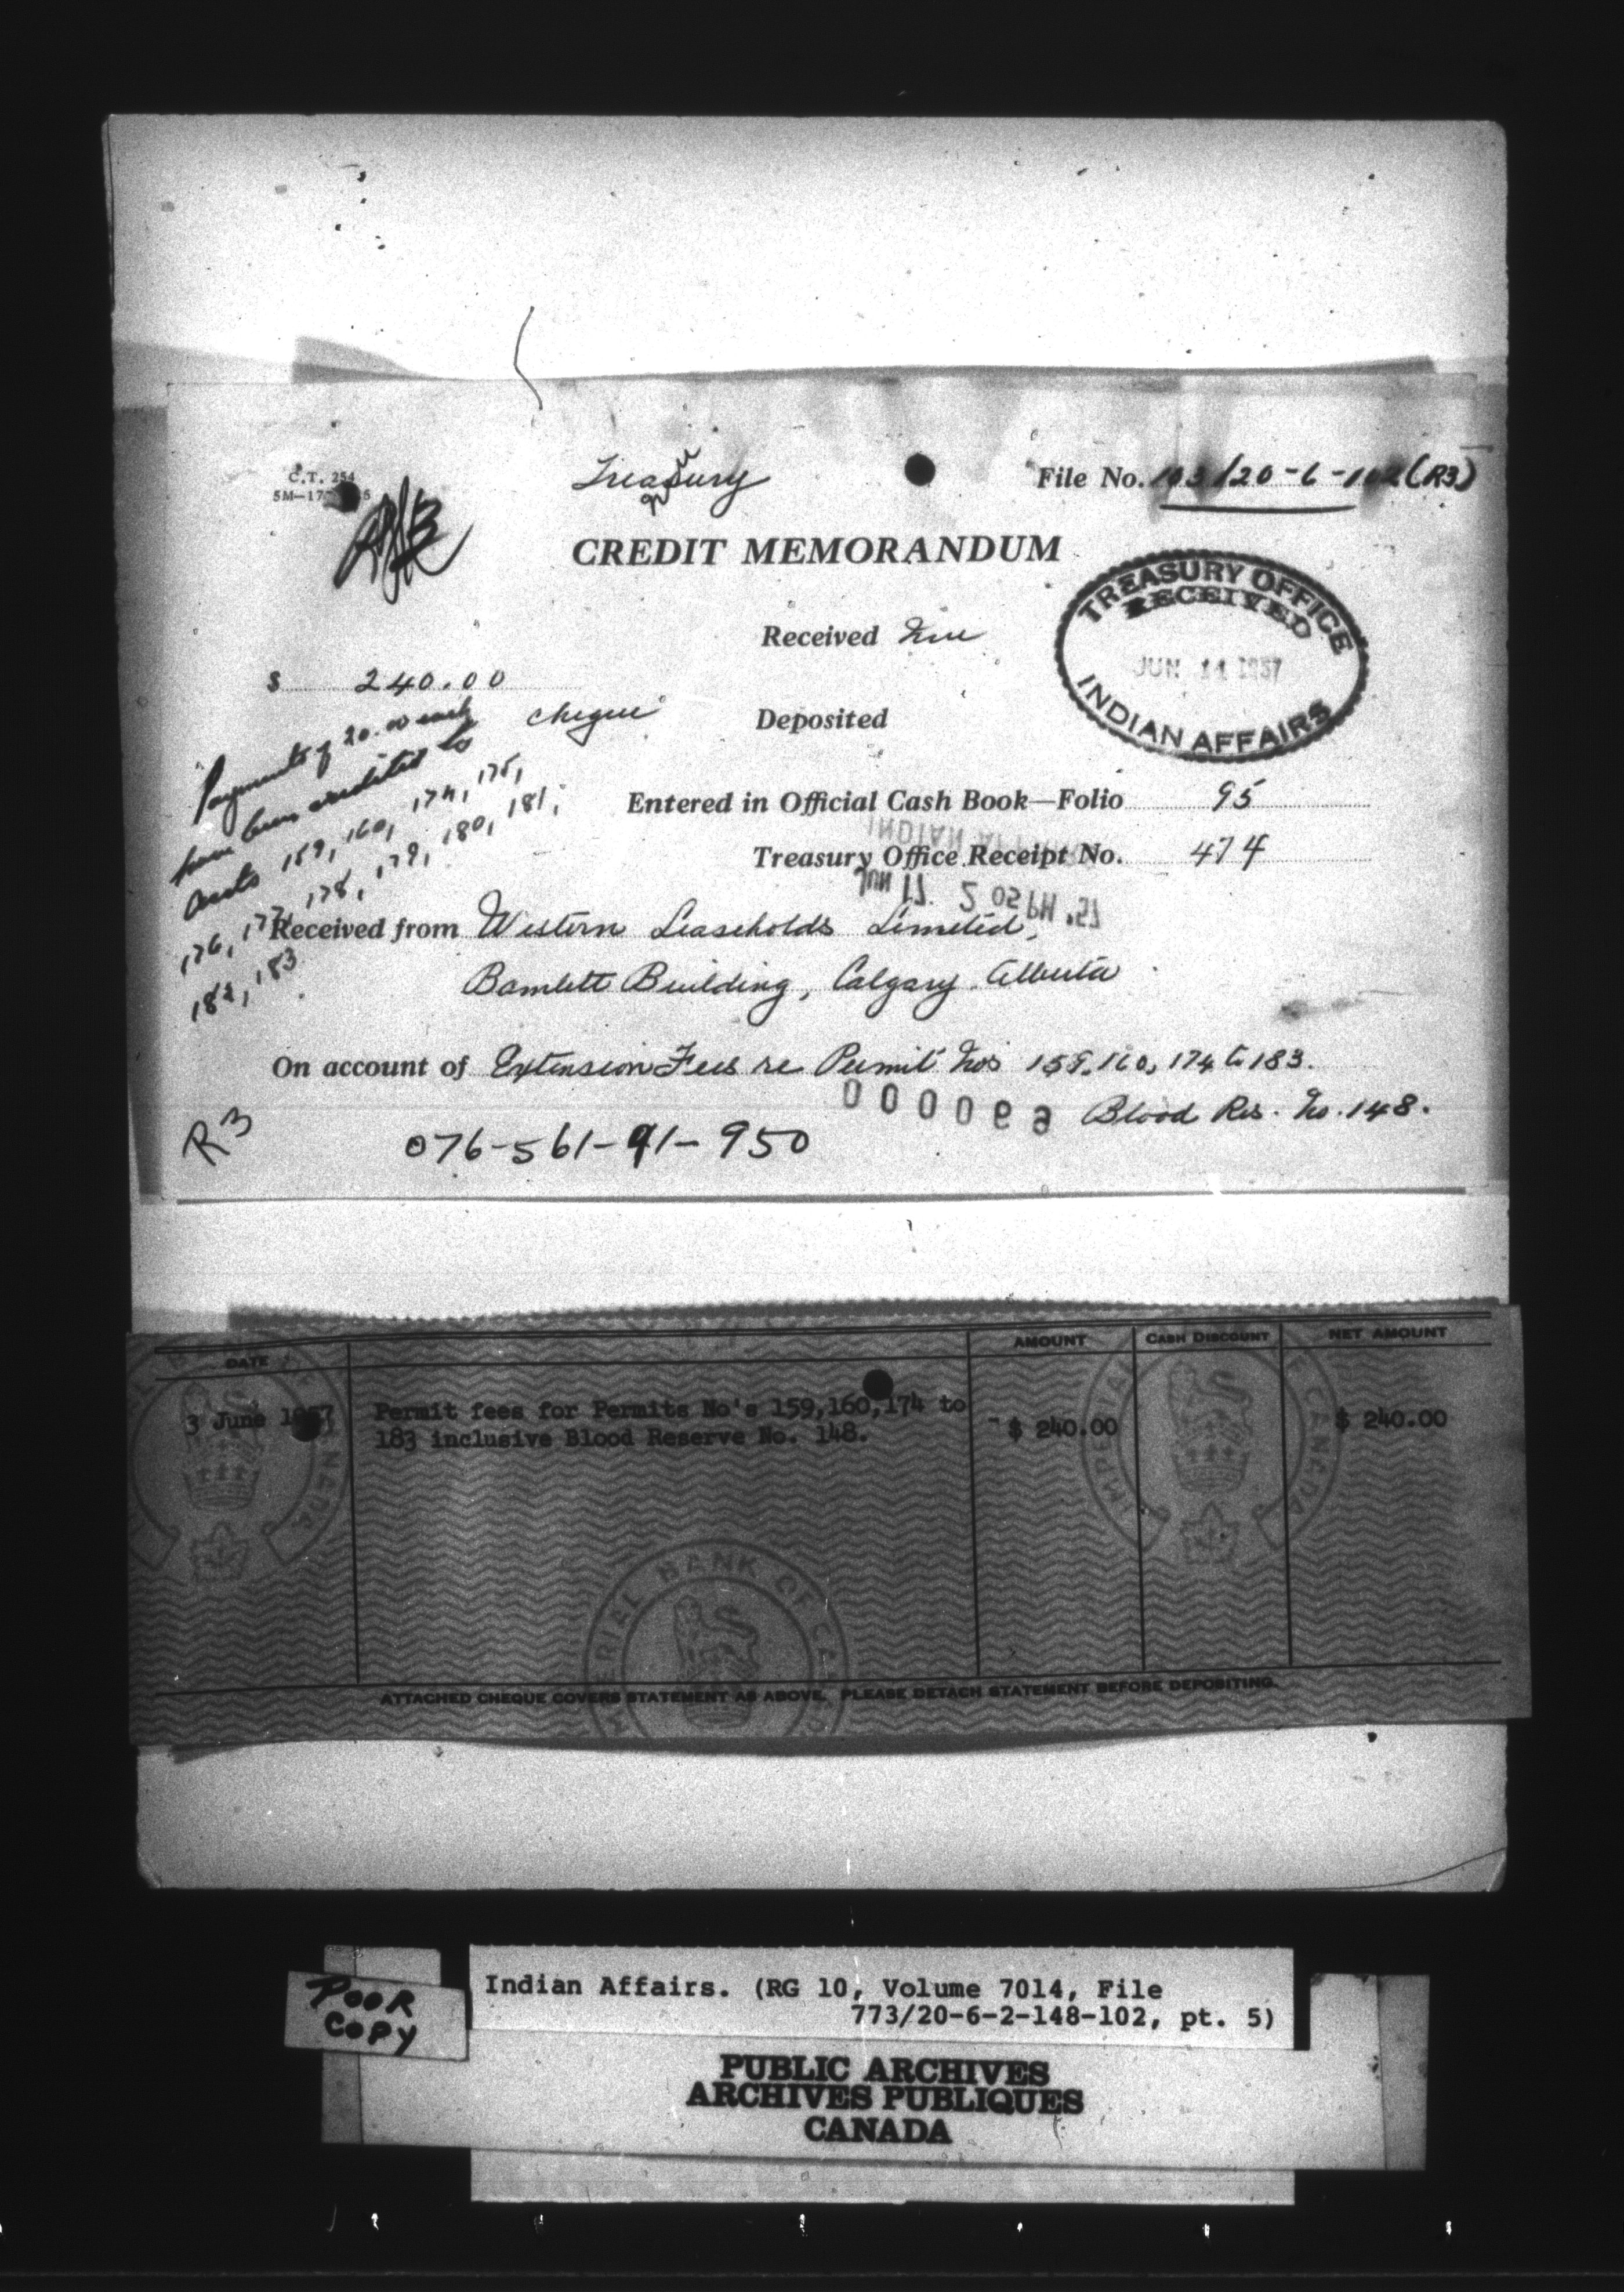 C.T. 254
Treasury
File No. 103/20-6-102 (R3)
CREDIT MEMORANDUM
TREASURY OFFICE
RECEIVED
JUN 11 1957
INDIAN AFFAIRS
Received
$ 240.00
cheque
Deposited
Payments of 20.00 each
have been credited to
accts 159, 160, 174, 175,
176, 177, 178, 179, 180, 181,
182, 183
Entered in Official Cash Book—Folio 95
INDIAN
Treasury Office Receipt No. 474
JUN 17 2 05 PM '57
Received from Western Leaseholds Limited,
Bamlett Building, Calgary Alberta
On account of Extension Fees re Permit Nos 159, 160, 174 to 183.
Blood Res. No. 148.
R3
076-561-91-950
DATE AMOUNT CASH DISCOUNT NET AMOUNT
3 June 1957 Permit fees for Permits No's 159,160,174 to
183 inclusive Blood Reserve No. 148. $ 240.00 $ 240.00
IMPERIAL BANK OF CANADA
ATTACHED CHEQUE COVERS STATEMENT AS ABOVE. PLEASE DETACH STATEMENT BEFORE DEPOSITING.
POOR
COPY
Indian Affairs. (RG 10, Volume 7014, File
773/20-6-2-148-102, pt. 5)
PUBLIC ARCHIVES
ARCHIVES PUBLIQUES
CANADA